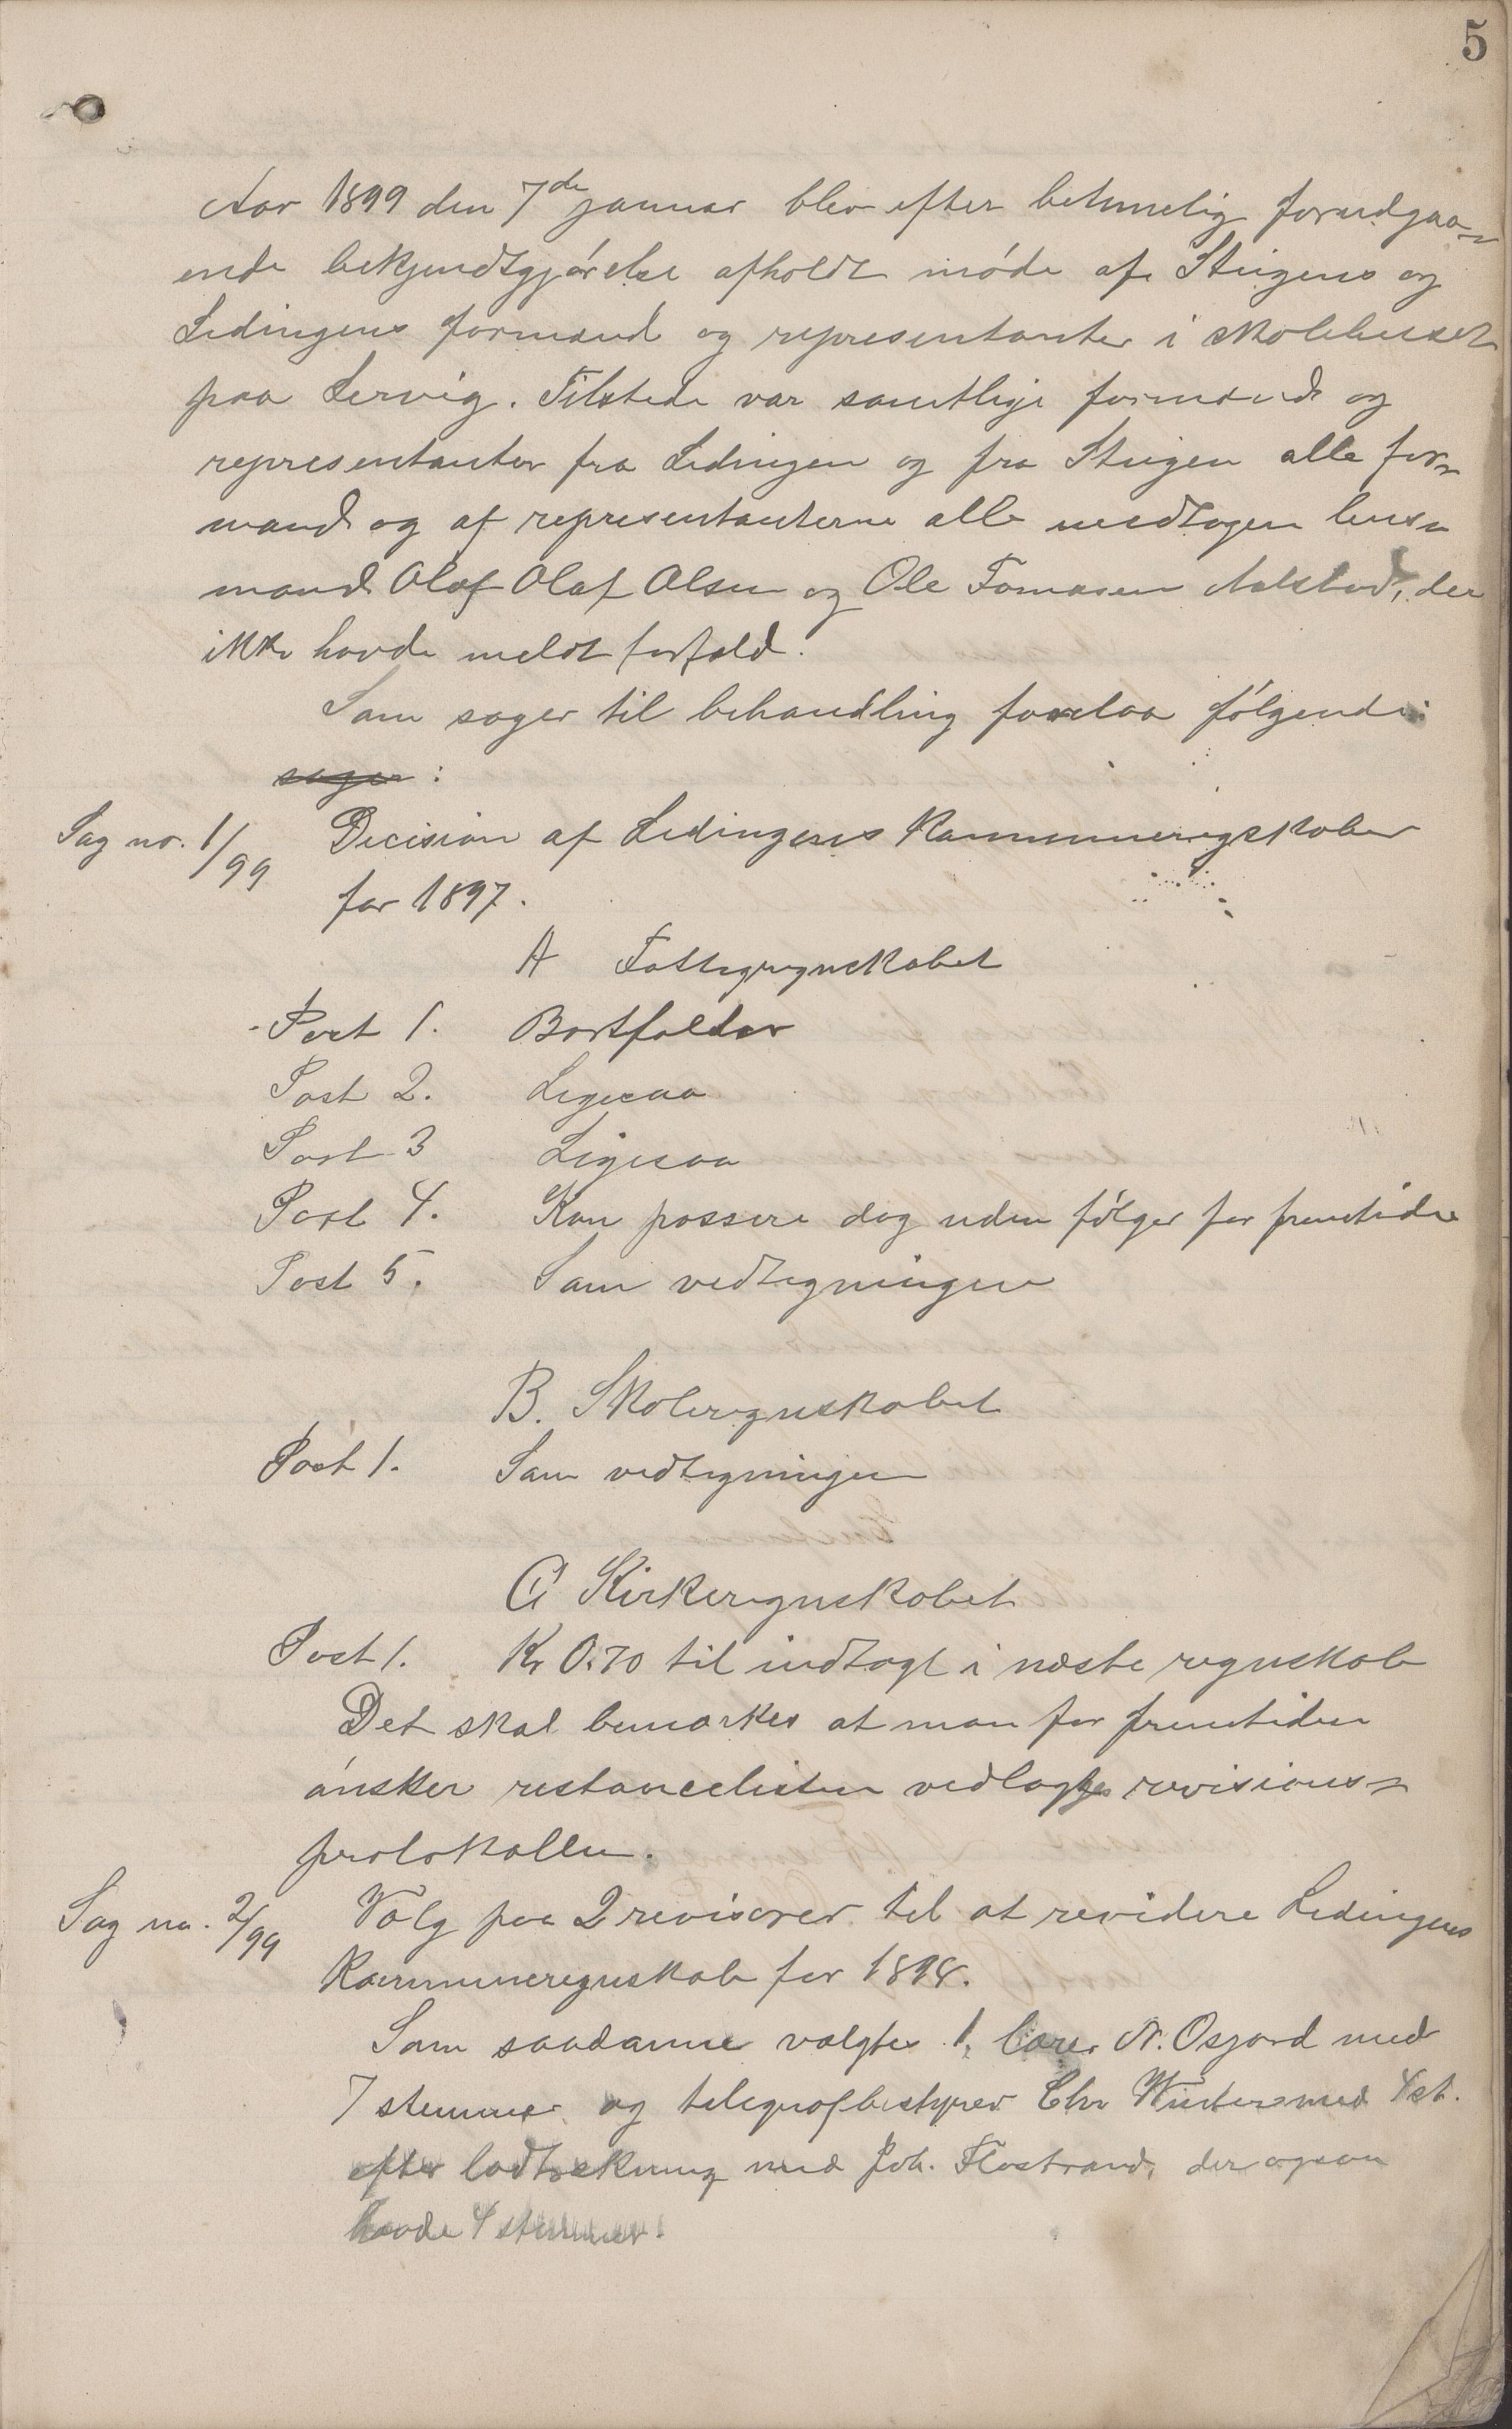 5
Aar 1899 den 7de januar blev efter betimelig forudgaa-
ende bekjendtgjørelse afholdt møde af Steigens og
Ledingens formænd og representanter i skolehuset
paa Lervig. Tilstede var samtlige formænd og
representanter fra Ledingen og fra Steigen alle for-
mænd og af representanterne alle undtagen lens-
mand Olaf Olaf Olsen og Ole Tomasen Aalstad, der
ikke havde meldt forfald.
Som sager til behandling forelaa følgende:
sager :
Sag no. 1/99 Decision af Ledingens Kommuneregnskaber
for 1897.
A Fattigregnskabet
Post 1. Bortfalder
Post 2. Ligesaa
Post 3 Ligesaa
Post 4. Kan passere dog uden følger for fremtiden
Post 5. Som vedtegningen
B. Skoleregnskabet
Post 1. Som vedtegningen
C Kirkeregnskabet
Post 1. Kr 0.70 til indtægt i næste regnskab
Det skal bemærkes at man for fremtiden
ønsker restancelisten vedlagt revisions-
protokollen.
Sag no. 2/99 Valg paa 2 revisorer til at revidere Ledingens
Kommuneregnskab for 1898.
Som saadanne valgtes 1, lærer N. Osjord med
7 stemmer og telegrafbestyrer Chr Winter med 4 st.
efter lodtrekning med Joh. Flostrand, der ogsaa
havde 4 stemmer.